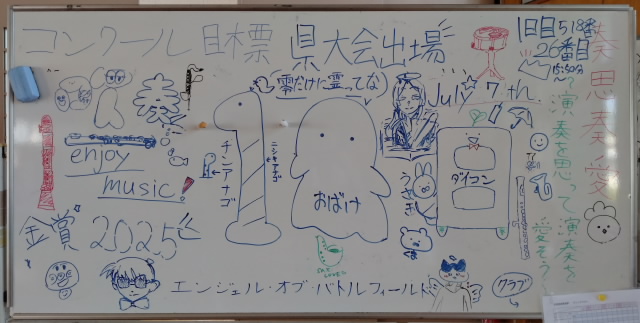 コンクール 目標 県大会出場
1日目 518番
26番目
15:50分
零だけに霊ってな
July 7th.
奏思奏愛
演奏を思って演奏を愛そう
enjoy
music!
チンアナゴ
ニシキアナゴ
おばけ
うさぎ
ダイコン
金賞 2025
エンジェル・オブ・バトルフィールド
クラブ